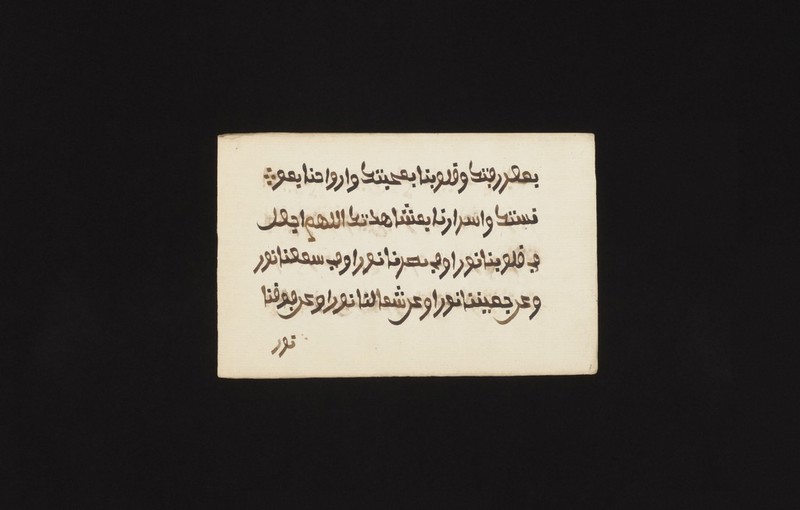 بمعرفتك وقلوبنا بمحبتك وارواحنا بمو
نستك واسرارنا بمشاهدتك اللهم اجعل
في قلوبنا نورا وفي بصرنا نورا وفي سمعنا نور
وعن يميننا نورا وعن شمالنا نورا وعن فوقنا
نور